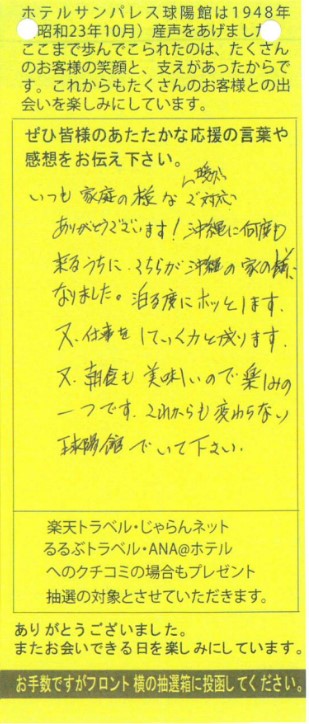 ホテルサンパレス球陽館は1948年
昭和23年10月）産声をあげました
ここまで歩んでこられたのは、たくさん
のお客様の笑顔と、支えがあったからで
す。これからもたくさんのお客様との出
会いを楽しみにしています。
ぜひ皆様のあたたかな応援の言葉や
感想をお伝え下さい。
暖かい
いつも家庭の様なご対応
ありがとうございます！沖縄に何度も
来るうちに、こちらが沖縄の家の様に
なりました。泊る度にホッとします。
又、仕事をしていく力と成ります。
又、朝食も美味しいので楽しみの
一つです。これからも変わらない
球陽館でいて下さい。
楽天トラベル・じゃらんネット
るるぶトラベル・ANA@ホテル
へのクチコミの場合もプレゼント
抽選の対象とさせていただきます。
ありがとうございました。
またお会いできる日を楽しみにしています。
お手数ですがフロント横の抽選箱に投函してください。